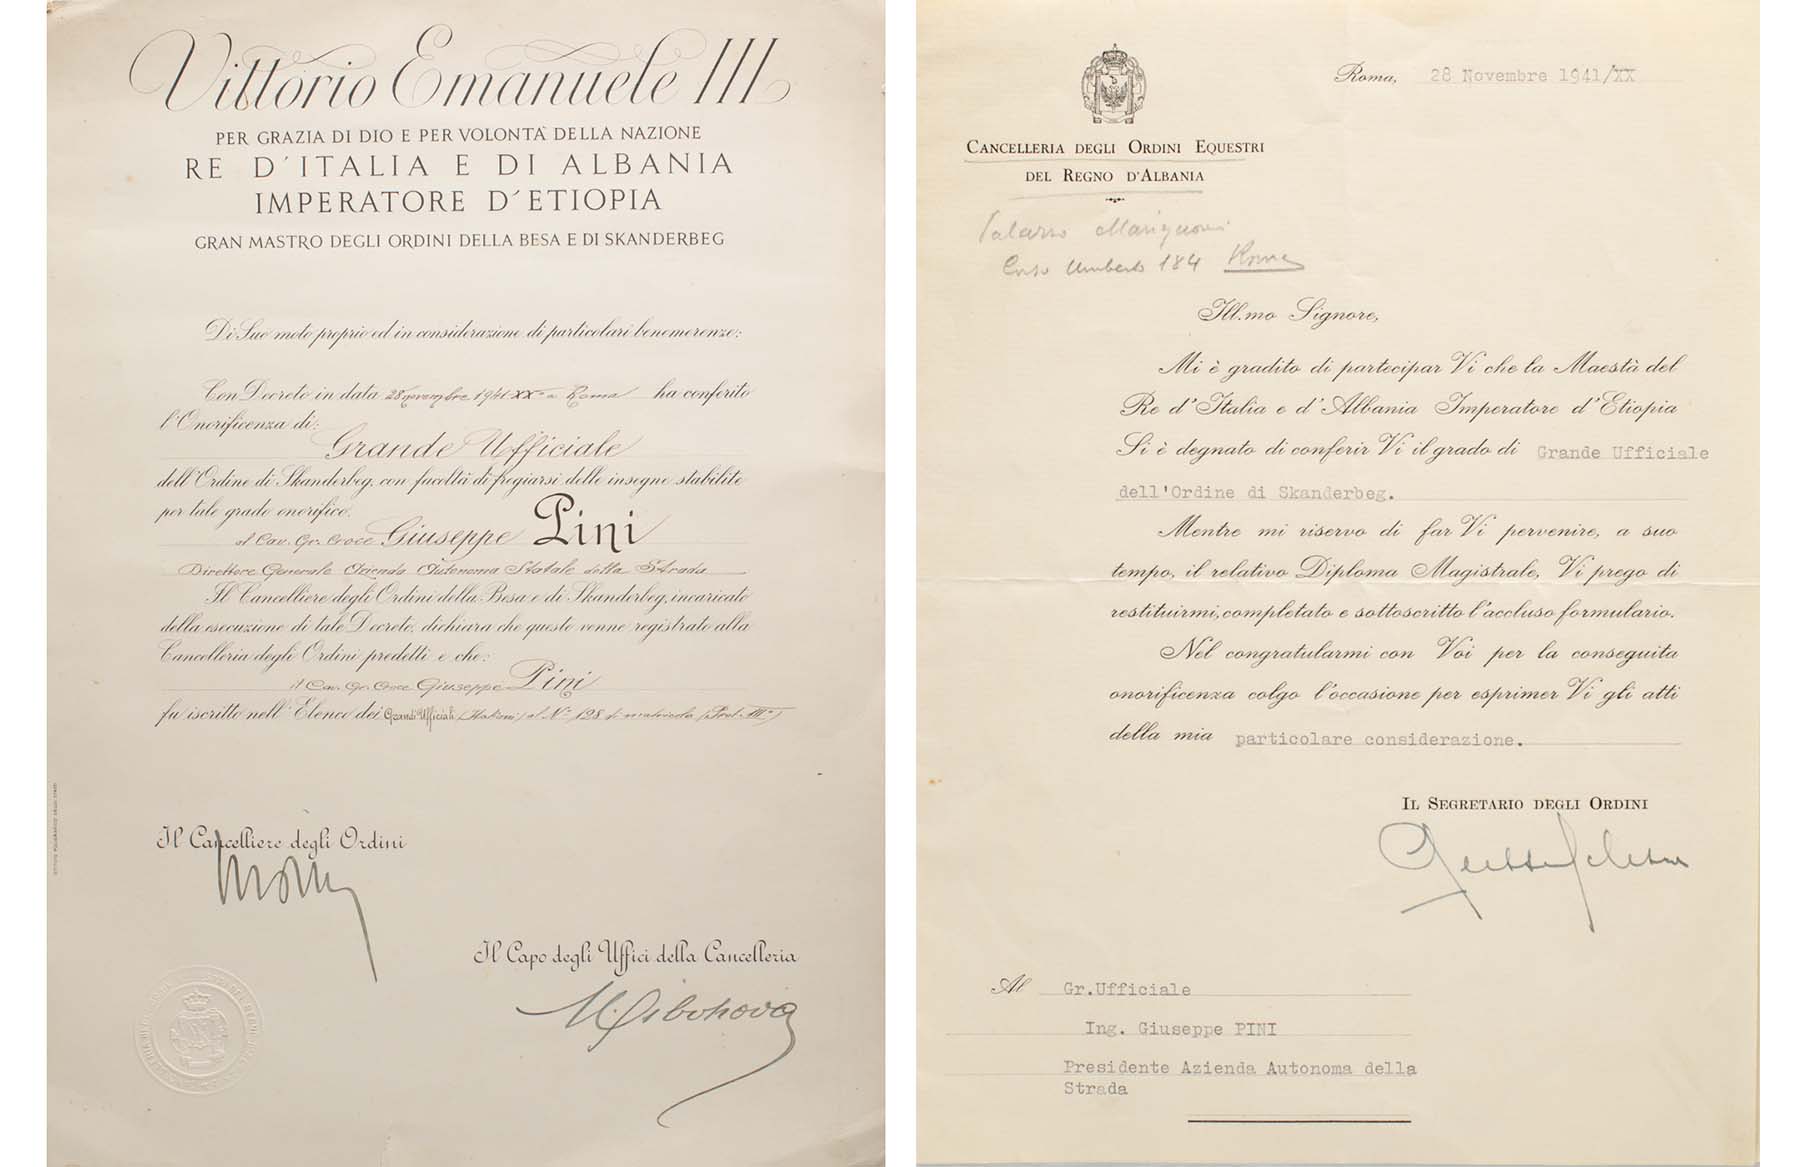 Vittorio Emanuele III
PER GRAZIA DI DIO E PER VOLONTA' DELLA NAZIONE
RE D'ITALIA E DI ALBANIA
IMPERATORE D'ETIOPIA
GRAN MASTRO DEGLI ORDINI DELLA BESA E DI SKANDERBEG
Di Suo moto proprio ed in considerazione di particolari benemerenze:
Con Decreto in data 28 novembre 1941-XX° a Roma ha conferito
l'Onorificenza di:
Grande Ufficiale
dell'Ordine di Skanderbeg, con facoltà di fregiarsi delle insegne stabilite
per tale grado onorifico.
al Cav. Gr. Croce Giuseppe Pini
Direttore Generale Azienda Autonoma Statale della Strada
Il Cancelliere degli Ordini della Besa e di Skanderbeg, incaricato
della esecuzione di tale Decreto, dichiara che questo venne registrato alla
Cancelleria degli Ordini predetti e che:
il Cav. Gr. Croce Giuseppe Pini
fu iscritto nell'Elenco dei Grandi Ufficiali (Italiani) al N° 128 di matricola
Il Cancelliere degli Ordini
Il Capo degli Uffici della Cancelleria
Roma, 28 Novembre 1941/XX
CANCELLERIA DEGLI ORDINI EQUESTRI
DEL REGNO D'ALBANIA
Palazzo Marignoni
Corso Umberto 184 Roma
Ill.mo Signore,
Mi è gradito di partecipar Vi che la Maestà del
Re d'Italia e d'Albania Imperatore d'Etiopia
Si è degnato di conferir Vi il grado di Grande Ufficiale
dell'Ordine di Skanderbeg.
Mentre mi riservo di far Vi pervenire, a suo
tempo, il relativo Diploma Magistrale, Vi prego di
restituirmi, completato e sottoscritto l'accluso formulario.
Nel congratularmi con Voi per la conseguita
onorificenza colgo l'occasione per esprimer Vi gli atti
della mia particolare considerazione.
IL SEGRETARIO DEGLI ORDINI
Al Gr.Ufficiale
Ing. Giuseppe PINI
Presidente Azienda Autonoma della
Strada